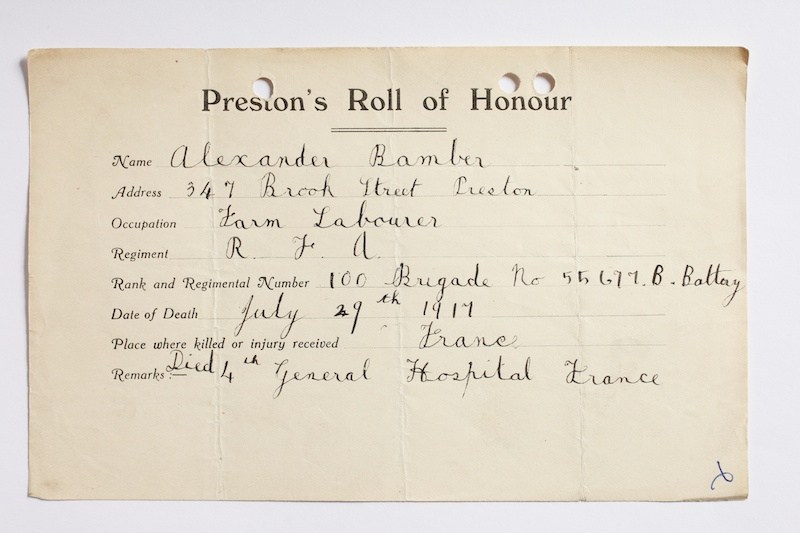 Preston's Roll of Honour
Name Alexander Bamber
Address 347 Brook Street Preston
Occupation Farm Labourer
Regiment R. F. A.
Rank and Regimental Number 100 Brigade No 55677. B. Battery
Date of Death July 29th 1917
Place where killed or injury received France
Remarks:- Died 4th General Hospital France